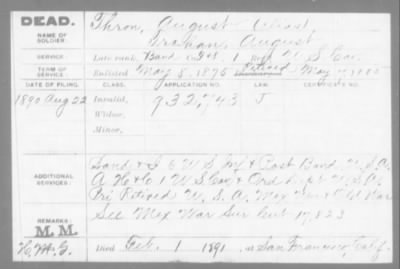 DEAD.
NAME OF SOLDIER:
Thron, August (alias)
Grahan, August
SERVICE:
Late rank, Band Regt. U.S. Cav.
TERM OF SERVICE:
Enlisted May 8, 1875 Retired May
DATE OF FILING. CLASS. APPLICATION NO. LAW. CERTIFICATE NO.
1890 Aug 22 Invalid, 932,743 J
Widow,
Minor,
ADDITIONAL SERVICES:
Band & 6 U.S. Inf. & Post Band, U.S.A.
1 U.S. Cav. & Ord. Dept. U.S.A.
Pri Retired U.S.A. Mex War & War
REMARKS:
See Mex War Sur Cert 17,823
M.M.
Died Feb. 1 1891, at San Francisco, Calif.